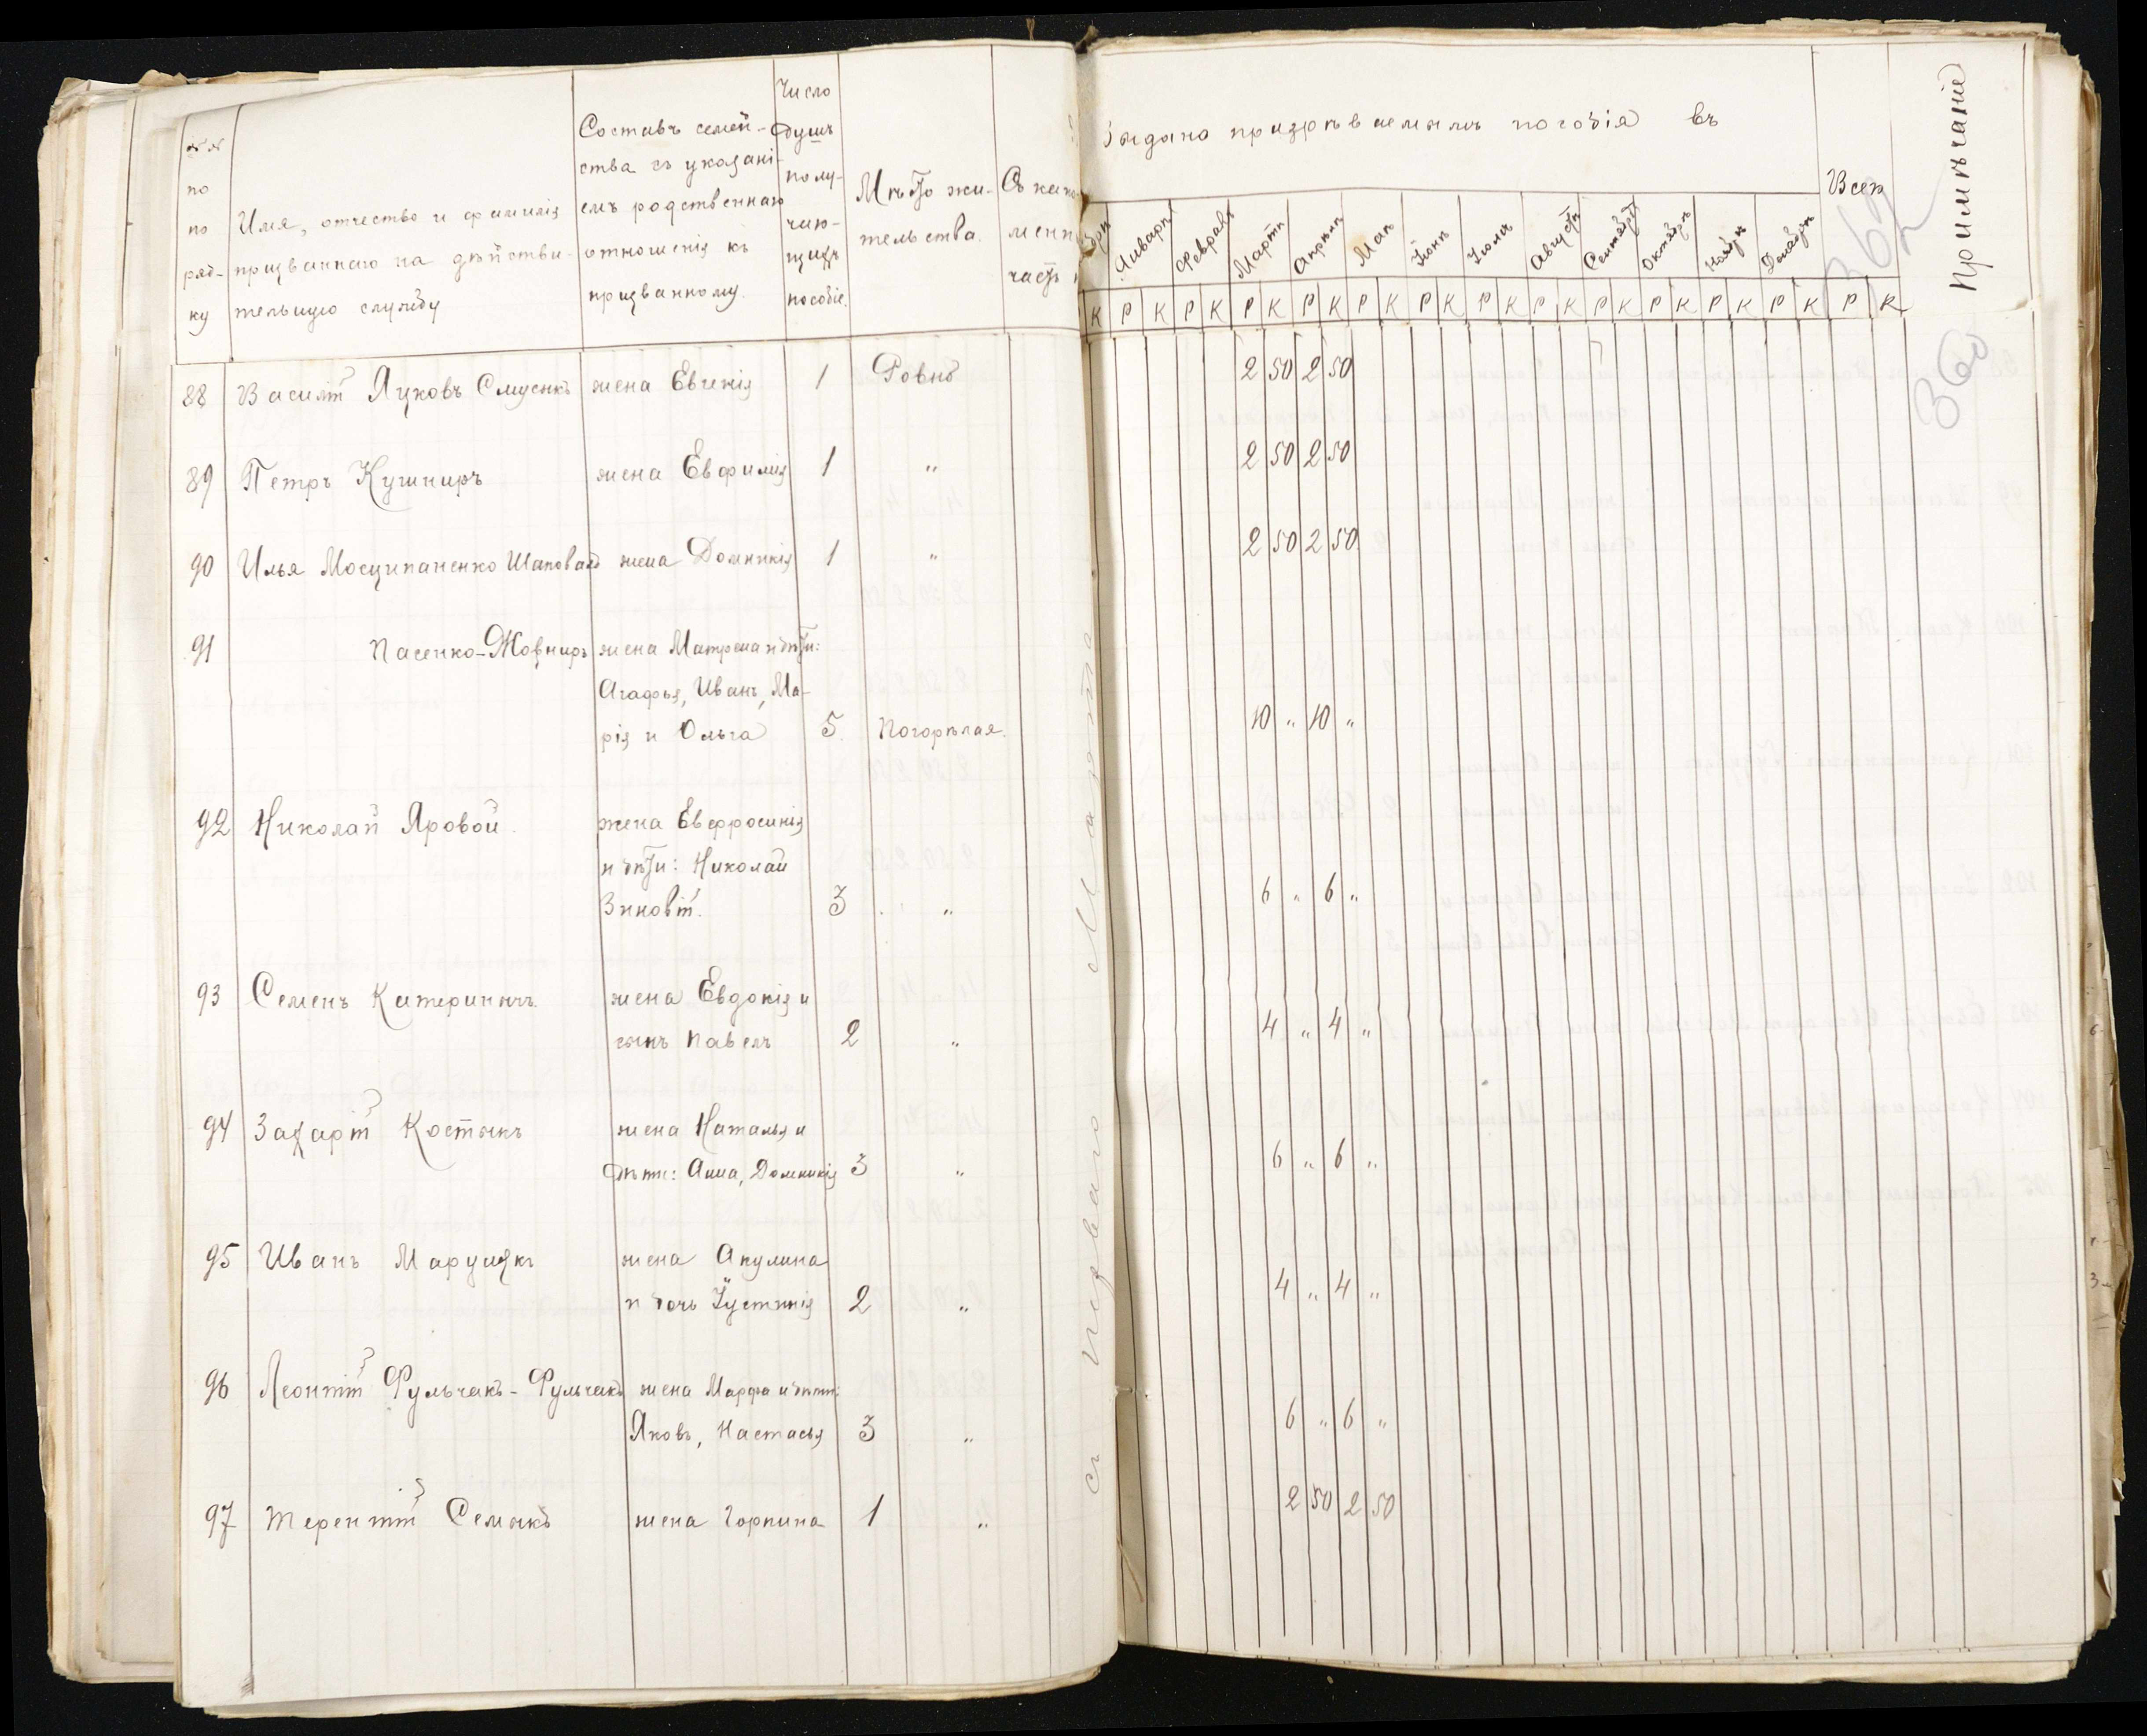 №№ по по ряд- ку
Имя, отчество и фамилія
призваннаго на дѣйстви-
тельную службу
Составъ семей-
ства съ указані-
емъ родственнаго
отношенія къ
призванному.
Число
душъ
полу-
чаю-
щихъ
пособіе.
Мѣсто жи-
тельства.
Съ как
мен
часть
Выдано призрѣваемымъ пособія въ
Январѣ Февралѣ Мартѣ Апрѣлѣ Маѣ Іюнѣ Іюлѣ Августѣ Сентябрѣ Октябрѣ Ноябрѣ Декабрѣ
Всег
Примѣчаніе
К Р К Р К Р К Р К Р К Р К Р К Р К Р К Р К Р К Р К Р К
360
88 Василій Яцковъ Смусенкъ жена Евгенія 1 Ровно 2 50 2 50
89 Петръ Кушниръ жена Евфимія 1 " 2 50 2 50
90 Илья Мосципаненко Шаповалъ жена Домникія 1 " 2 50 2 50
91 Пасенко-Жовниръ жена Матрена и дѣти:
Агафья, Иванъ, Ма-
рія и Ольга 5 Погорѣлая. 10 " 10 "
92 Николай Яровой. жена Евфросинія
и дѣти: Николай
Зиновій. 3 " 6 " 6 "
93 Семенъ Катеринычъ. жена Евдокія и
сынъ Павелъ 2 " 4 " 4 "
94 Захарій Костыкъ жена Наталья и
дѣти: Анна, Домникія 3 " 6 " 6 "
95 Иванъ Марущакъ жена Акулина
и дочь Іустинія 2 " 4 " 4 "
96 Леонтій Фульчакъ-Фульчакъ жена Марфа и дѣти:
Яковъ, Настасья 3 " 6 " 6 "
97 Терентій Семыкъ жена Горпина 1 " 2 50 2 50
съ перваго Марта